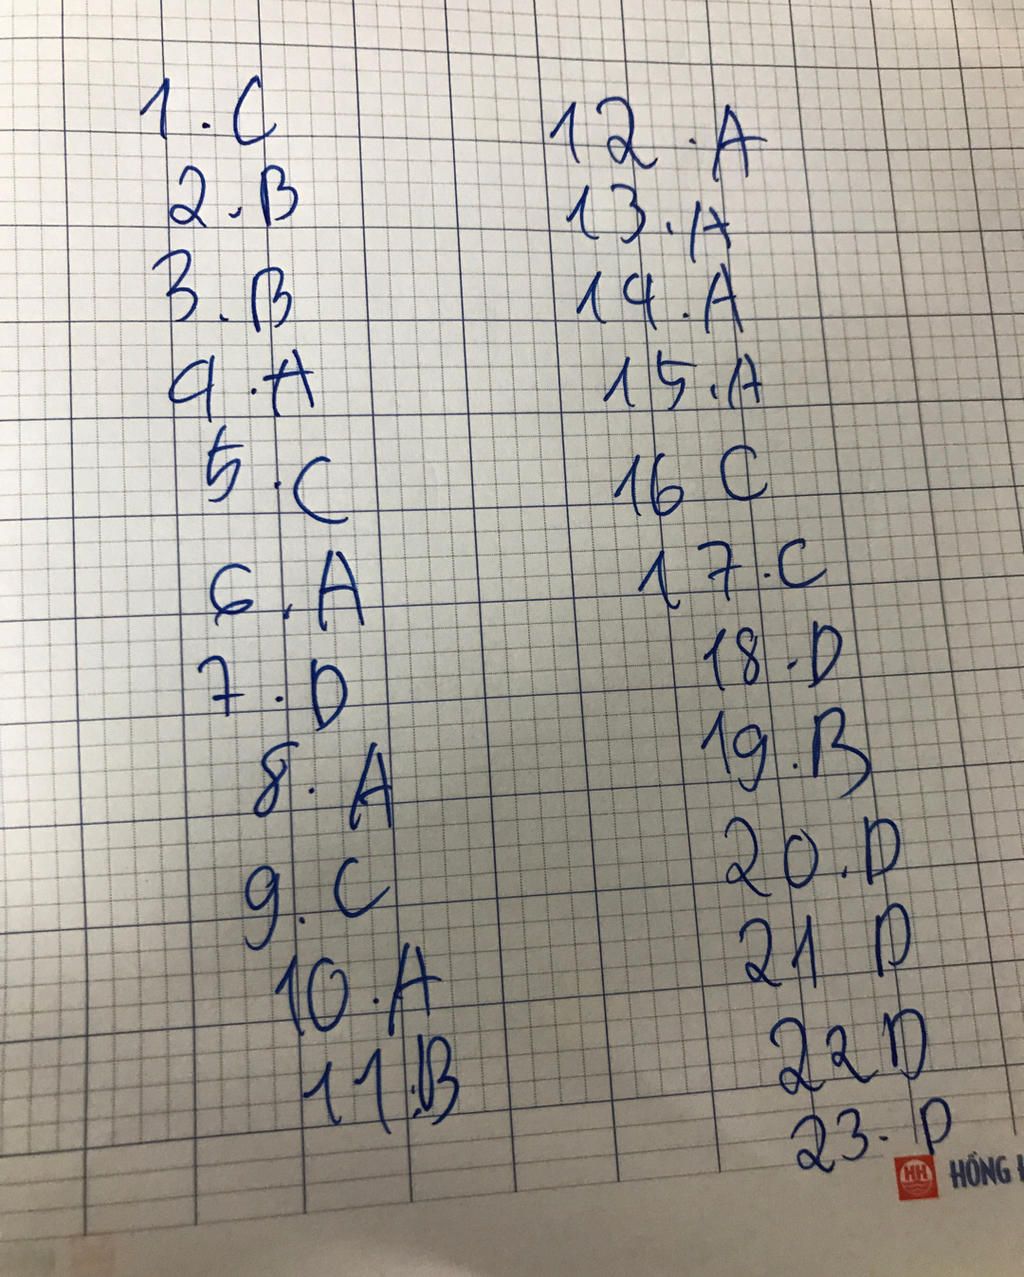 1. C
2. B
3. B
4. A
5. C
6. A
7. D
8. A
9. C
10. A
11. B
12. A
13. A
14. A
15. A
16 C
17. C
18. D
19. B
20. D
21 D
22 D
23. D
HH HỒNG